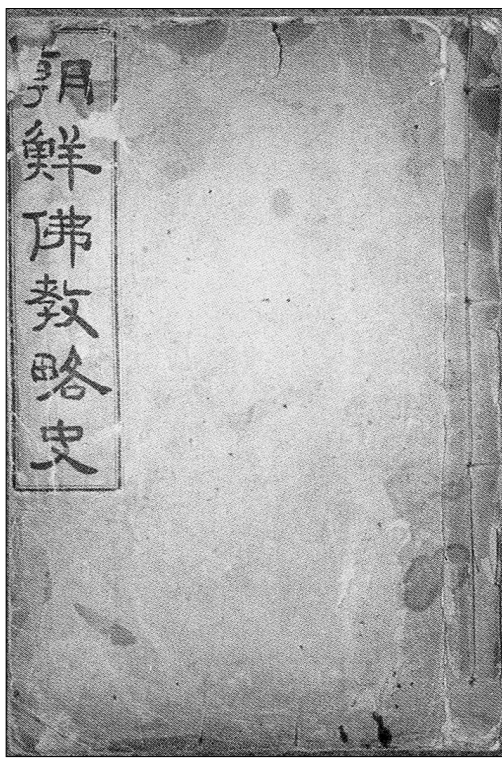 朝鮮佛敎略史